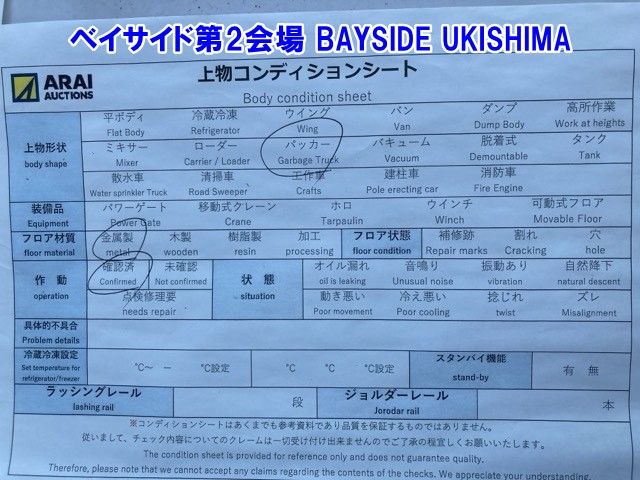 ベイサイド第2会場 BAYSIDE UKISHIMA
ARAI AUCTIONS
上物コンディションシート
Body condition sheet
上物形状 body shape
平ボディ 冷蔵冷凍 ウイング バン ダンプ 高所作業
Flat Body Refrigerator Wing Van Dump Body Work at heights
ミキサー ローダー パッカー バキューム 脱着式 タンク
Mixer Carrier / Loader Garbage Truck Vacuum Demountable Tank
散水車 清掃車 工作車 建柱車 消防車
Water sprinkler Truck Road Sweeper Crafts Pole erecting car Fire Engine
装備品 Equipment
パワーゲート 移動式クレーン ホロ ウインチ 可動式フロア
Power Gate Crane Tarpaulin Winch Movable Floor
フロア材質 floor material
金属製 木製 樹脂製 加工
metal wooden resin processing
フロア状態 floor condition
補修跡 割れ 穴
Repair marks Cracking hole
作動 operation
確認済 未確認
Confirmed Not confirmed
点検修理要
needs repair
状態 situation
オイル漏れ 音鳴り 振動あり 自然降下
oil is leaking Unusual noise vibration natural descent
動き悪い 冷え悪い 捻じれ ズレ
Poor movement Poor cooling twist Misalignment
具体的不具合
Problem details
冷蔵冷凍設定
Set temperature for refrigerator/freezer
℃～ ー ℃設定 ℃ ℃ ℃設定
スタンバイ機能
stand-by
有 無
ラッシングレール
lashing rail
段
ジョルダーレール
Jorodar rail
本
※コンディションシートはあくまでも参考資料であり品質を保証するものではありません。
従いまして、チェック内容についてのクレームは一切受け付け出来ませんのでご了承の程宜しくお願いいたします。
The condition sheet is provided for reference only and does not guarantee quality.
Therefore, please note that we cannot accept any claims regarding the contents of the checks. We appreciate your understanding.